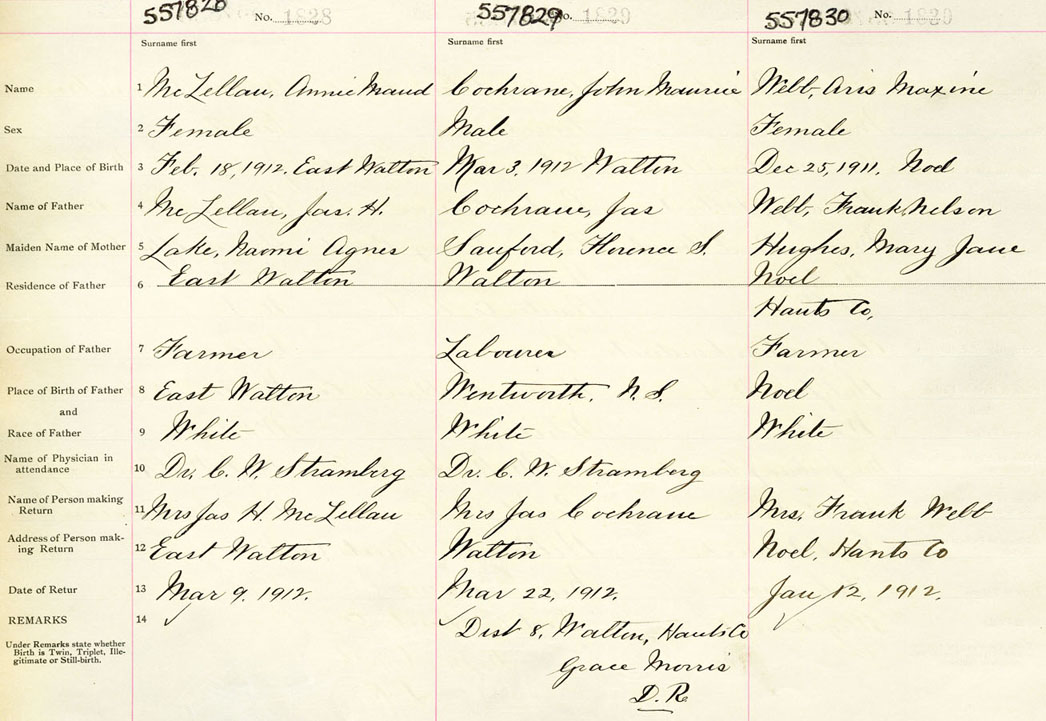 557828 No. 1828 557829 No. 1829 557830 No. 1829
Surname first Surname first Surname first
Name 1 McLellan, Annie Maud Cochrane, John Maurice Webb, Aris Maxine
Sex 2 Female Male Female
Date and Place of Birth 3 Feb. 18, 1912. East Walton Mar 3, 1912 Walton Dec 25, 1911, Noel
Name of Father 4 McLellan, Jas. H. Cochrane, Jas Webb, Frank Nelson
Maiden Name of Mother 5 Lake, Naomi Agnes Sanford, Florence S. Hughes, Mary Jane
Residence of Father 6 East Walton Walton Noel
Hants Co,
Occupation of Father 7 Farmer Labourer Farmer
Place of Birth of Father 8 East Walton Wentworth, N.S. Noel
and
Race of Father 9 White White White
Name of Physician in
attendance 10 Dr. C. W. Stramberg Dr. C. W. Stramberg
Name of Person making
Return 11 Mrs Jas H. McLellan Mrs Jas Cochrane Mrs. Frank Webb
Address of Person mak-
ing Return 12 East Walton Walton Noel, Hants Co
Date of Retur 13 Mar 9, 1912. Mar 22, 1912. Jan 12, 1912.
REMARKS 14
Dist 8, Walton, Hants Co
Under Remarks state whether
Birth is Twin, Triplet, Ille-
gitimate or Still-birth.
Grace Morris
D.R.